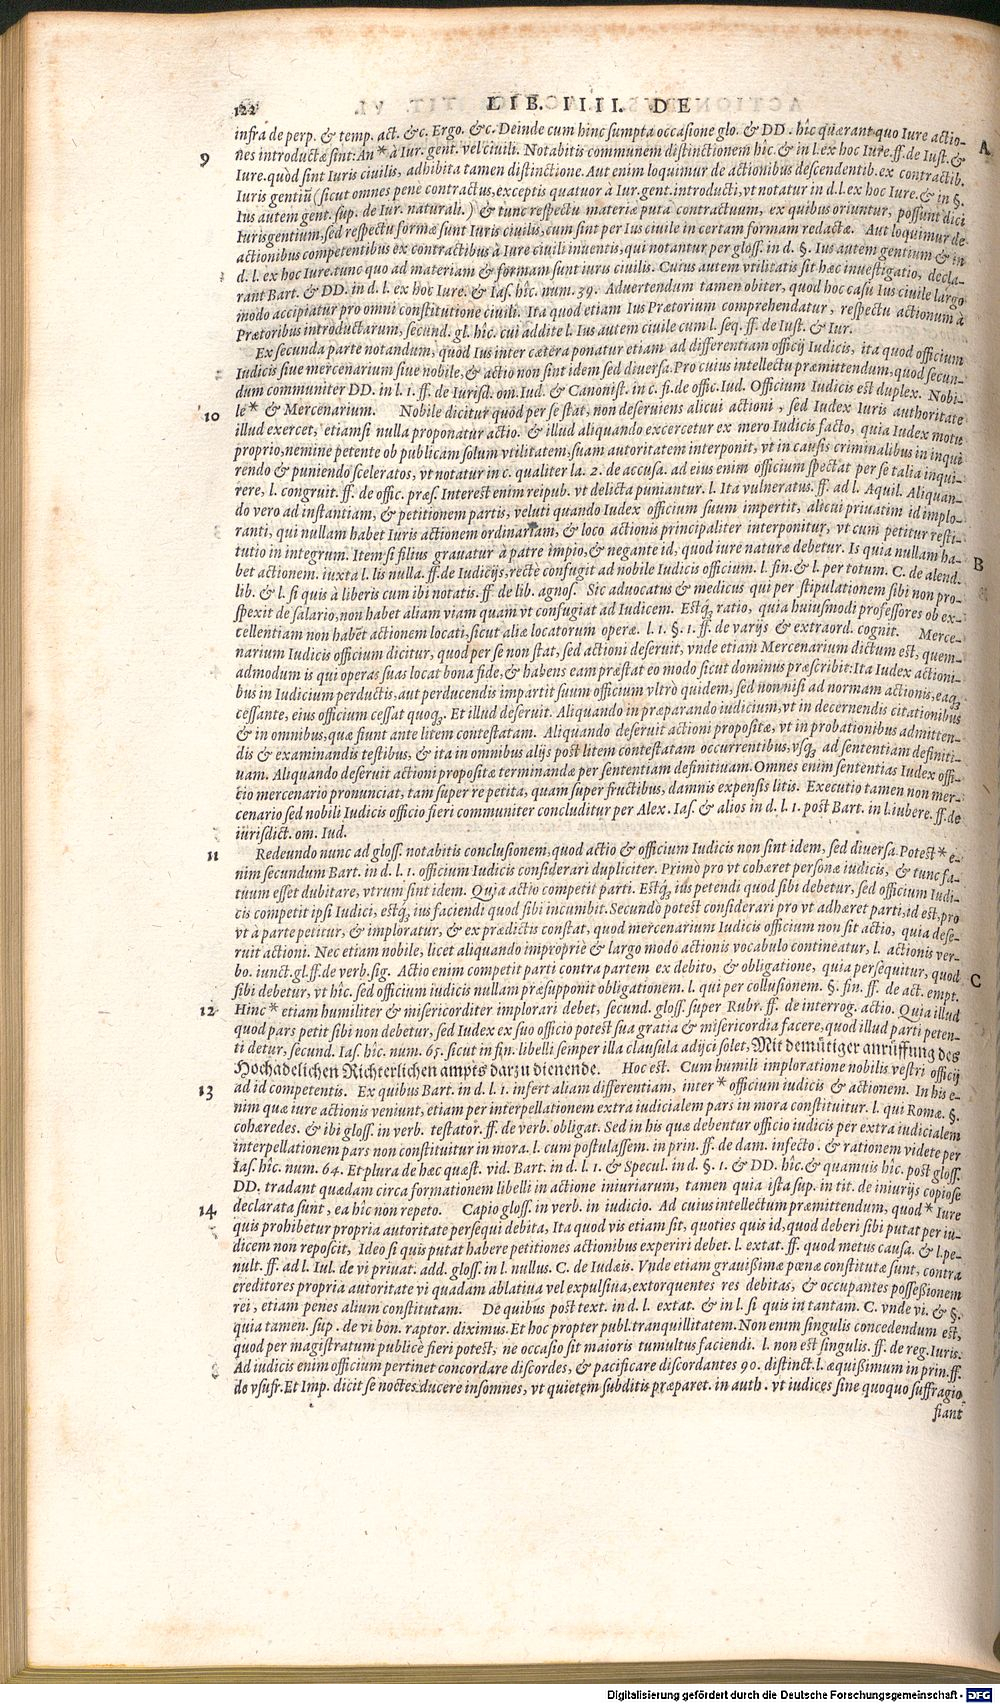 122 LIB. IIII. DE
infra de perp. & temp. act. &c. Ergo. &c. Deinde cum hinc sumpta occasione glo. & DD. hîc quærant quo Iure actio- A
9 nes introductæ sint: An * à Iur. gent. vel civili. Notabitis communem distinctionem hîc. & in l. ex hoc Iure. ff. de Iust. &
Iure. quòd sint Iuris civilis, adhibita tamen distinctione. Aut enim loquimur de actionibus descendentib. ex contractib.
Iuris gentiũ (sicut omnes penè contractus, exceptis quatuor à Iur. gent. introducti, vt notatur in d. l. ex hoc Iure. & in §.
Ius autem gent. sup. de Iur. naturali.) & tunc respectu materiæ puta contractuum, ex quibus oriuntur, possunt dici
Iurisgentium, sed respectu formæ sunt Iuris civilis, cum sint per Ius civile in certam formam redactæ. Aut loquimur de
actionibus competentibus ex contractibus à Iure civili inuentis, qui notantur per gloss. in d. §. Ius autem gentium & in
d. l. ex hoc Iure. tunc quo ad materiam & formam sunt iuris civilis. Cuius autem vtilitatis sit hæc inuestigatio, decla-
rant Bart. & DD. in d. l. ex hoc Iure. & Ias. hîc. num. 39. Aduertendum tamen obiter, quod hoc casu Ius civile largo
modo accipiatur pro omni constitutione civili. Ita quod etiam Ius Prætorium comprehendatur, respectu actionum à
Prætoribus introductarum, secund. gl. hîc. cui addite l. Ius autem civile cum l. seq. ff. de Iust. & Iur.
Ex secunda parte notandum, quòd Ius inter cætera ponatur etiam ad differentiam officij Iudicis, ita quod officium
Iudicis siue mercenarium siue nobile, & actio non sint idem sed diuersa. Pro cuius intellectu præmittendum, quod secun-
dum communiter DD. in l. 1. ff. de Iurisd. om. Iud. & Canonist. in c. fi. de offic. Iud. Officium Iudicis est duplex. Nobi-
10 le * & Mercenarium. Nobile dicitur quòd per se stat, non deseruiens alicui actioni, sed Iudex Iuris authoritate
illud exercet, etiamsi nulla proponatur actio. & illud aliquando excercetur ex mero Iudicis facto, quia Iudex motu
proprio, nemine petente ob publicam solum vtilitatem, suam autoritatem interponit, vt in causis criminalibus in inqui
rendo & puniendo sceleratos, vt notatur in c. qualiter la. 2. de accusa. ad eius enim officium spectat per se talia inqui-
rere, l. congruit. ff. de offic. præs. Interest enim reipub. vt delicta puniantur. l. Ita vulneratus. ff. ad l. Aquil. Aliquan-
do vero ad instantiam, & petitionem partis, veluti quando Iudex officium suum impertit, alicui priuatim id implo-
ranti, qui nullam habet Iuris actionem ordinariam, & loco actionis principaliter interponitur, vt cum petitur resti-
tutio in integrum. Item si filius grauatur à patre impio, & negante id, quod iure naturæ debetur. Is quia nullam ha- B
bet actionem. iuxta l. lis nulla. ff. de Iudicijs, rectè confugit ad nobile Iudicis officium. l. fin. & l. per totum. C. de alend.
lib. & l. si quis à liberis cum ibi notatis. ff. de lib. agnos. Sic aduocatus & medicus qui per stipulationem sibi non pro-
spexit de salario, non habet aliam viam quam vt confugiat ad Iudicem. Estq́ ratio, quia huiusmodi professores ob ex-
cellentiam non habẽt actionem locati, sicut aliæ locatorum operæ. l. 1. §. 1. ff. de varijs & extraord. cognit. Merce-
narium Iudicis officium dicitur, quod per se non stat, sed actioni deseruit, vnde etiam Mercenarium dictum est, quem-
admodum is qui operas suas locat bona fide, & habens eam præstat eo modo sicut dominus præscribit: Ita Iudex actioni-
bus in Iudicium perductis, aut perducendis impartit suum officium vltrò quidem, sed non nisi ad normam actionis, eaq́
cessante, eius officium cessat quoq́. Et illud deseruit. Aliquando in præparando iudicium, vt in decernendis citationibus
& in omnibus, quæ fiunt ante litem contestatam. Aliquando deseruit actioni propositæ, vt in probationibus admitten-
dis & examinandis testibus, & ita in omnibus alijs post litem contestatam occurrentibus, vsq́ ad sententiam definiti-
uam. Aliquando deseruit actioni propositæ terminandæ per sententiam definitiuam. Omnes enim sententias Iudex offi-
cio mercenario pronunciat, tam super re petita, quam super fructibus, damnis expensis litis. Executio tamen non mer-
cenario sed nobili Iudicis officio fieri communiter concluditur per Alex. Ias. & alios in d. l. 1. post Bart. in l. iubere. ff. de
iurisdict. om. Iud.
11 Redeundo nunc ad gloss. notabitis conclusionem, quod actio & officium Iudicis non sint idem, sed diuersa. Potest * e-
nim secundum Bart. in d. l. 1. officium Iudicis considerari dupliciter. Primò pro vt cohæret personæ iudicis, & tunc fa-
tuum esset dubitare, vtrum sint idem. Quia actio competit parti. Estq́, ius petendi quod sibi debetur, sed officium Iudi-
cis competit ipsi Iudici, estq́, ius faciendi quod sibi incumbit. Secundò potest considerari pro vt adhæret parti, id est, pro
vt à parte petitur, & imploratur, & ex prædictis constat, quod mercenarium Iudicis officium non sit actio, quia dese-
ruit actioni. Nec etiam nobile, licet aliquando impropriè & largo modo actionis vocabulo contineatur, l. actionis ver-
bo. iunct. gl. ff. de verb. sig. Actio enim competit parti contra partem ex debito, & obligatione, quia persequitur, quod C
sibi debetur, vt hîc. sed officium iudicis nullam præsupponit obligationem. l. qui per collusionem. §. fin. ff. de act. empt.
12 Hinc * etiam humiliter & misericorditer implorari debet, secund. gloss. super Rubr. ff. de interrog. actio. Quia illud
quod pars petit sibi non debetur, sed Iudex ex suo officio potest sua gratia & misericordia facere, quod illud parti peten-
ti detur, secund. Ias. hîc. num. 65. sicut in fin. libelli semper illa clausula adijci solet, Mit demütiger anrüffung des
Hochadelichen Richterlichen ampts darzu dienende. Hoc est. Cum humili imploratione nobilis vestri officij
13 ad id competentis. Ex quibus Bart. in d. l. 1. infert aliam differentiam, inter * officium iudicis & actionem. In his e-
nim quæ iure actionis veniunt, etiam per interpellationem extra iudicialem pars in mora constituitur. l. qui Romæ. §.
cohæredes. & ibi gloss. in verb. testator. ff. de verb. obligat. Sed in his quæ debentur officio iudicis per extra iudicialem
interpellationem pars non constituitur in mora. l. cum postulassem. in prin. ff. de dam. infecto. & rationem videte per
Ias. hîc. num. 64. Et plura de hac quæst. vid. Bart. in d. l. 1. & Specul. in d. §. 1. & DD. hîc. & quamuis hîc. post gloss.
DD. tradant quædam circa formationem libelli in actione iniuriarum, tamen quia ista sup. in tit. de iniurijs copiose
14 declarata sunt, ea hîc non repeto. Capio gloss. in verb. in iudicio. Ad cuius intellectum præmittendum, quod * Iure
quis prohibetur propria autoritate persequi debita, Ita quod vis etiam sit, quoties quis id, quod deberi sibi putat per iu-
dicem non reposcit, Ideo si quis putat habere petitiones actionibus experiri debet. l. extat. ff. quod metus causa. & l. pe-
nult. ff. ad l. Iul. de vi priuat. add. gloss. in l. nullus. C. de Iudæis. Vnde etiam grauissimæ pœnæ constitutæ sunt, contra
creditores propria autoritate vi quadam ablatiua vel expulsiua, extorquentes res debitas, & occupantes possessionem
rei, etiam penes alium constitutam. De quibus post text. in d. l. extat. & in l. si quis in tantam. C. vnde vi. & §.
quia tamen. sup. de vi bon. raptor. diximus. Et hoc propter publ. tranquillitatem. Non enim singulis concedendum est,
quod per magistratum publicè fieri potest, ne occasio sit maioris tumultus faciendi. l. non est singulis. ff. de reg. Iuris.
Ad iudicis enim officium pertinet concordare discordes, & pacificare discordantes 90. distinct. l. æquissimum in prin. ff.
de vsufr. Et Imp. dicit se noctes ducere insomnes, vt quietem subditis præparet. in auth. vt iudices sine quoquo suffragio
fiant
Digitalisierung gefördert durch die Deutsche Forschungsgemeinschaft - DFG